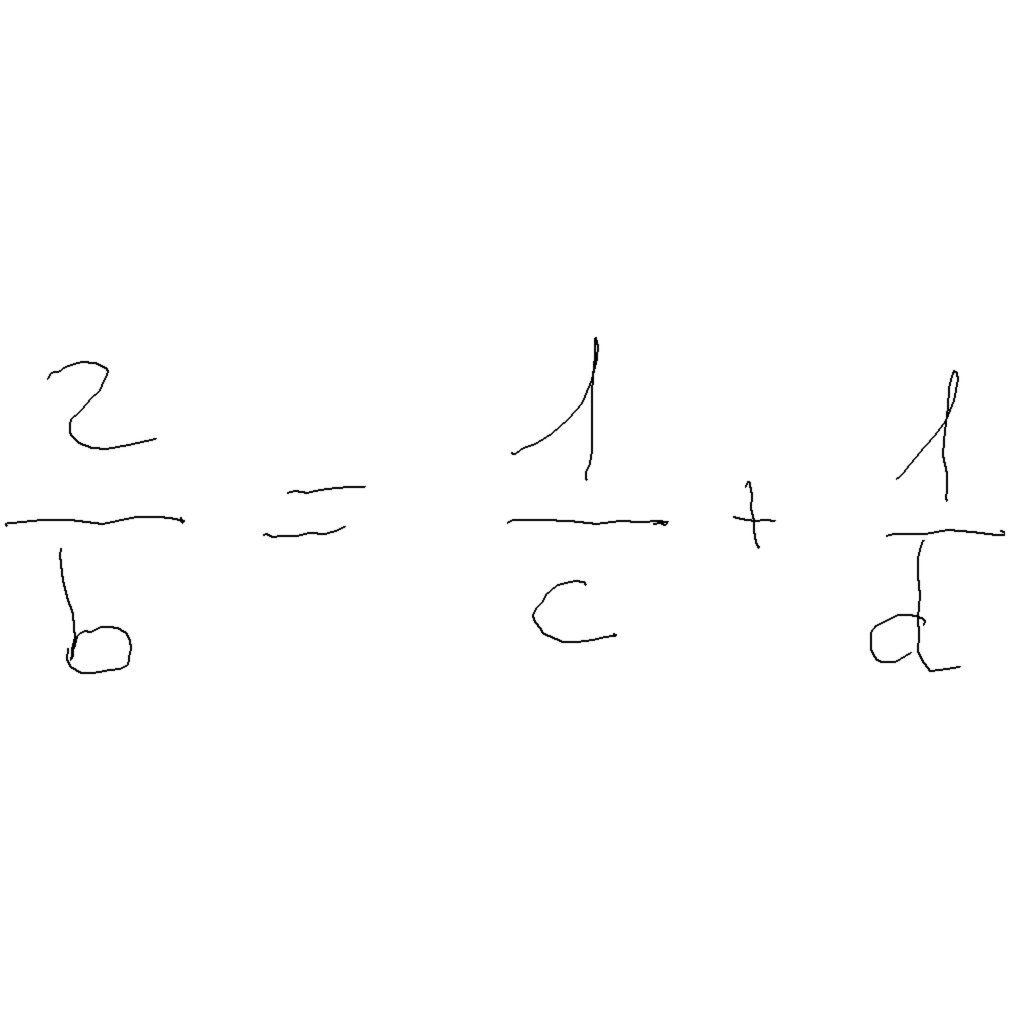 2/b = 1/c + 1/d